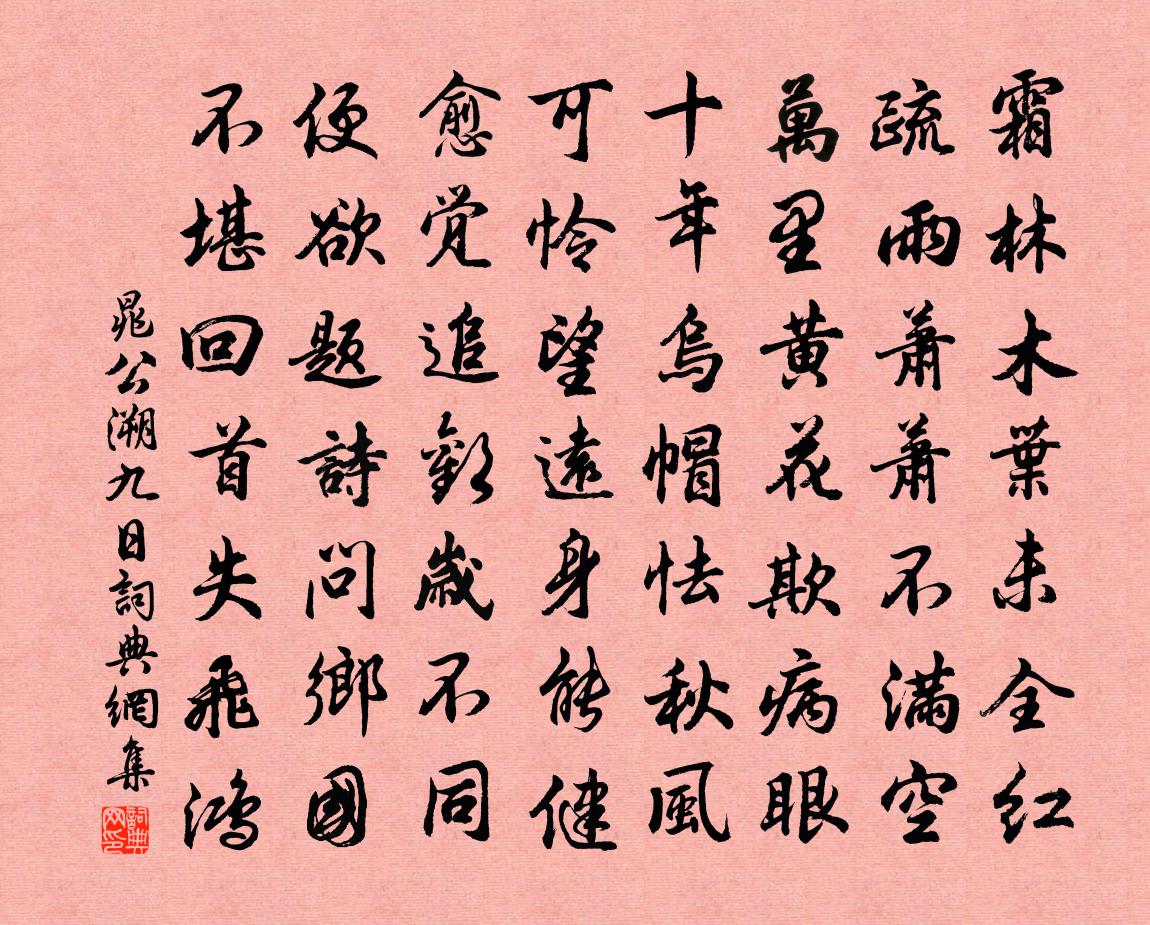 霜林木葉未全红
疏雨萧萧不满空
萬里黄花欺病眼
十年烏帽怯秋風
可怜望遠身能健
愈觉追歡歳不同
便欲题詩问鄉國
不堪回首失飛鴻
晁公溯九日詞典網集
詞典网印